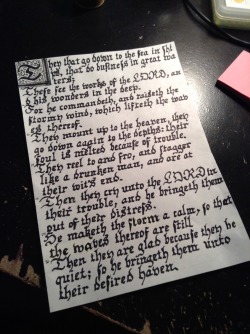 They that go down to the sea in shi
ps, that do business in great wa
ters;
These see the works of the LORD, an
d his wonders in the deep.
For he commandeth, and raiseth the
stormy wind, which lifteth the wav
es thereof.
They mount up to the heaven, they
go down again to the depths: their
soul is melted because of trouble.
They reel to and fro, and stagger
like a drunken man, and are at
their wit's end.
Then they cry unto the LORD in
their trouble, and he bringeth them
out of their distress.
He maketh the storm a calm, so that
the waves thereof are still.
Then they are glad because they be
quiet; so he bringeth them unto
their desired haven.